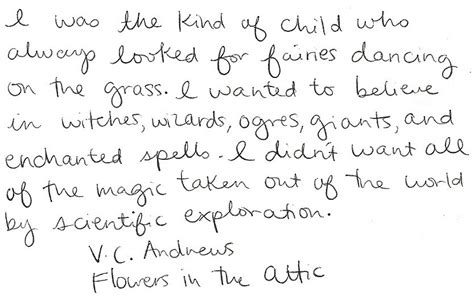 I was the kind of child who
always looked for fairies dancing
on the grass. I wanted to believe
in witches, wizards, ogres, giants, and
enchanted spells. I didn't want all
of the magic taken out of the world
by scientific exploration.
V.C. Andrews
Flowers in the Attic